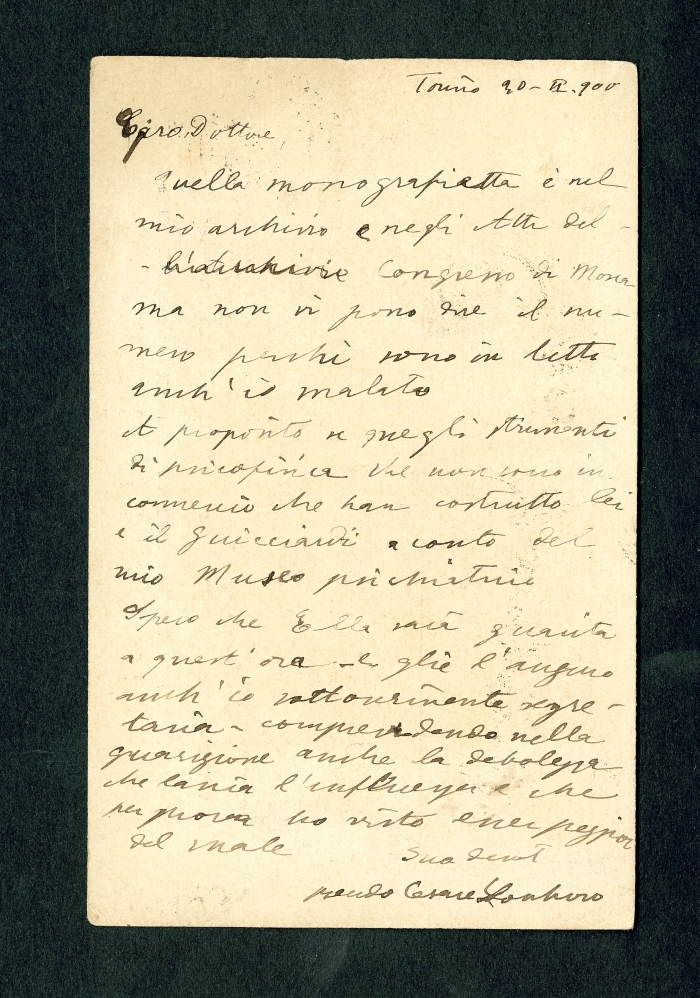 Torino 20 - II. 900
Caro Dottore,
Quella monografietta è nel
mio archivio e negli Atti del -
- l'archivio Congresso di Mona
ma non vi posso dire il nu -
mero perchè sono in letto
anch' io malato
A proposito
di psicofisica che non sono in
commercio che han costrutto lei
e il Guicciardi a conto del
mio Museo psichiatrico
Spero che Ella sarà guarita
a quest' ora - e glie l'auguro
anch' io sottoscrivente segre -
taria - comprendendo nella
guarigione anche la debolezza
che lascia l'influenza e che
per prova ho visto esser peggior
del male
Suo devot
Cesare Lombroso